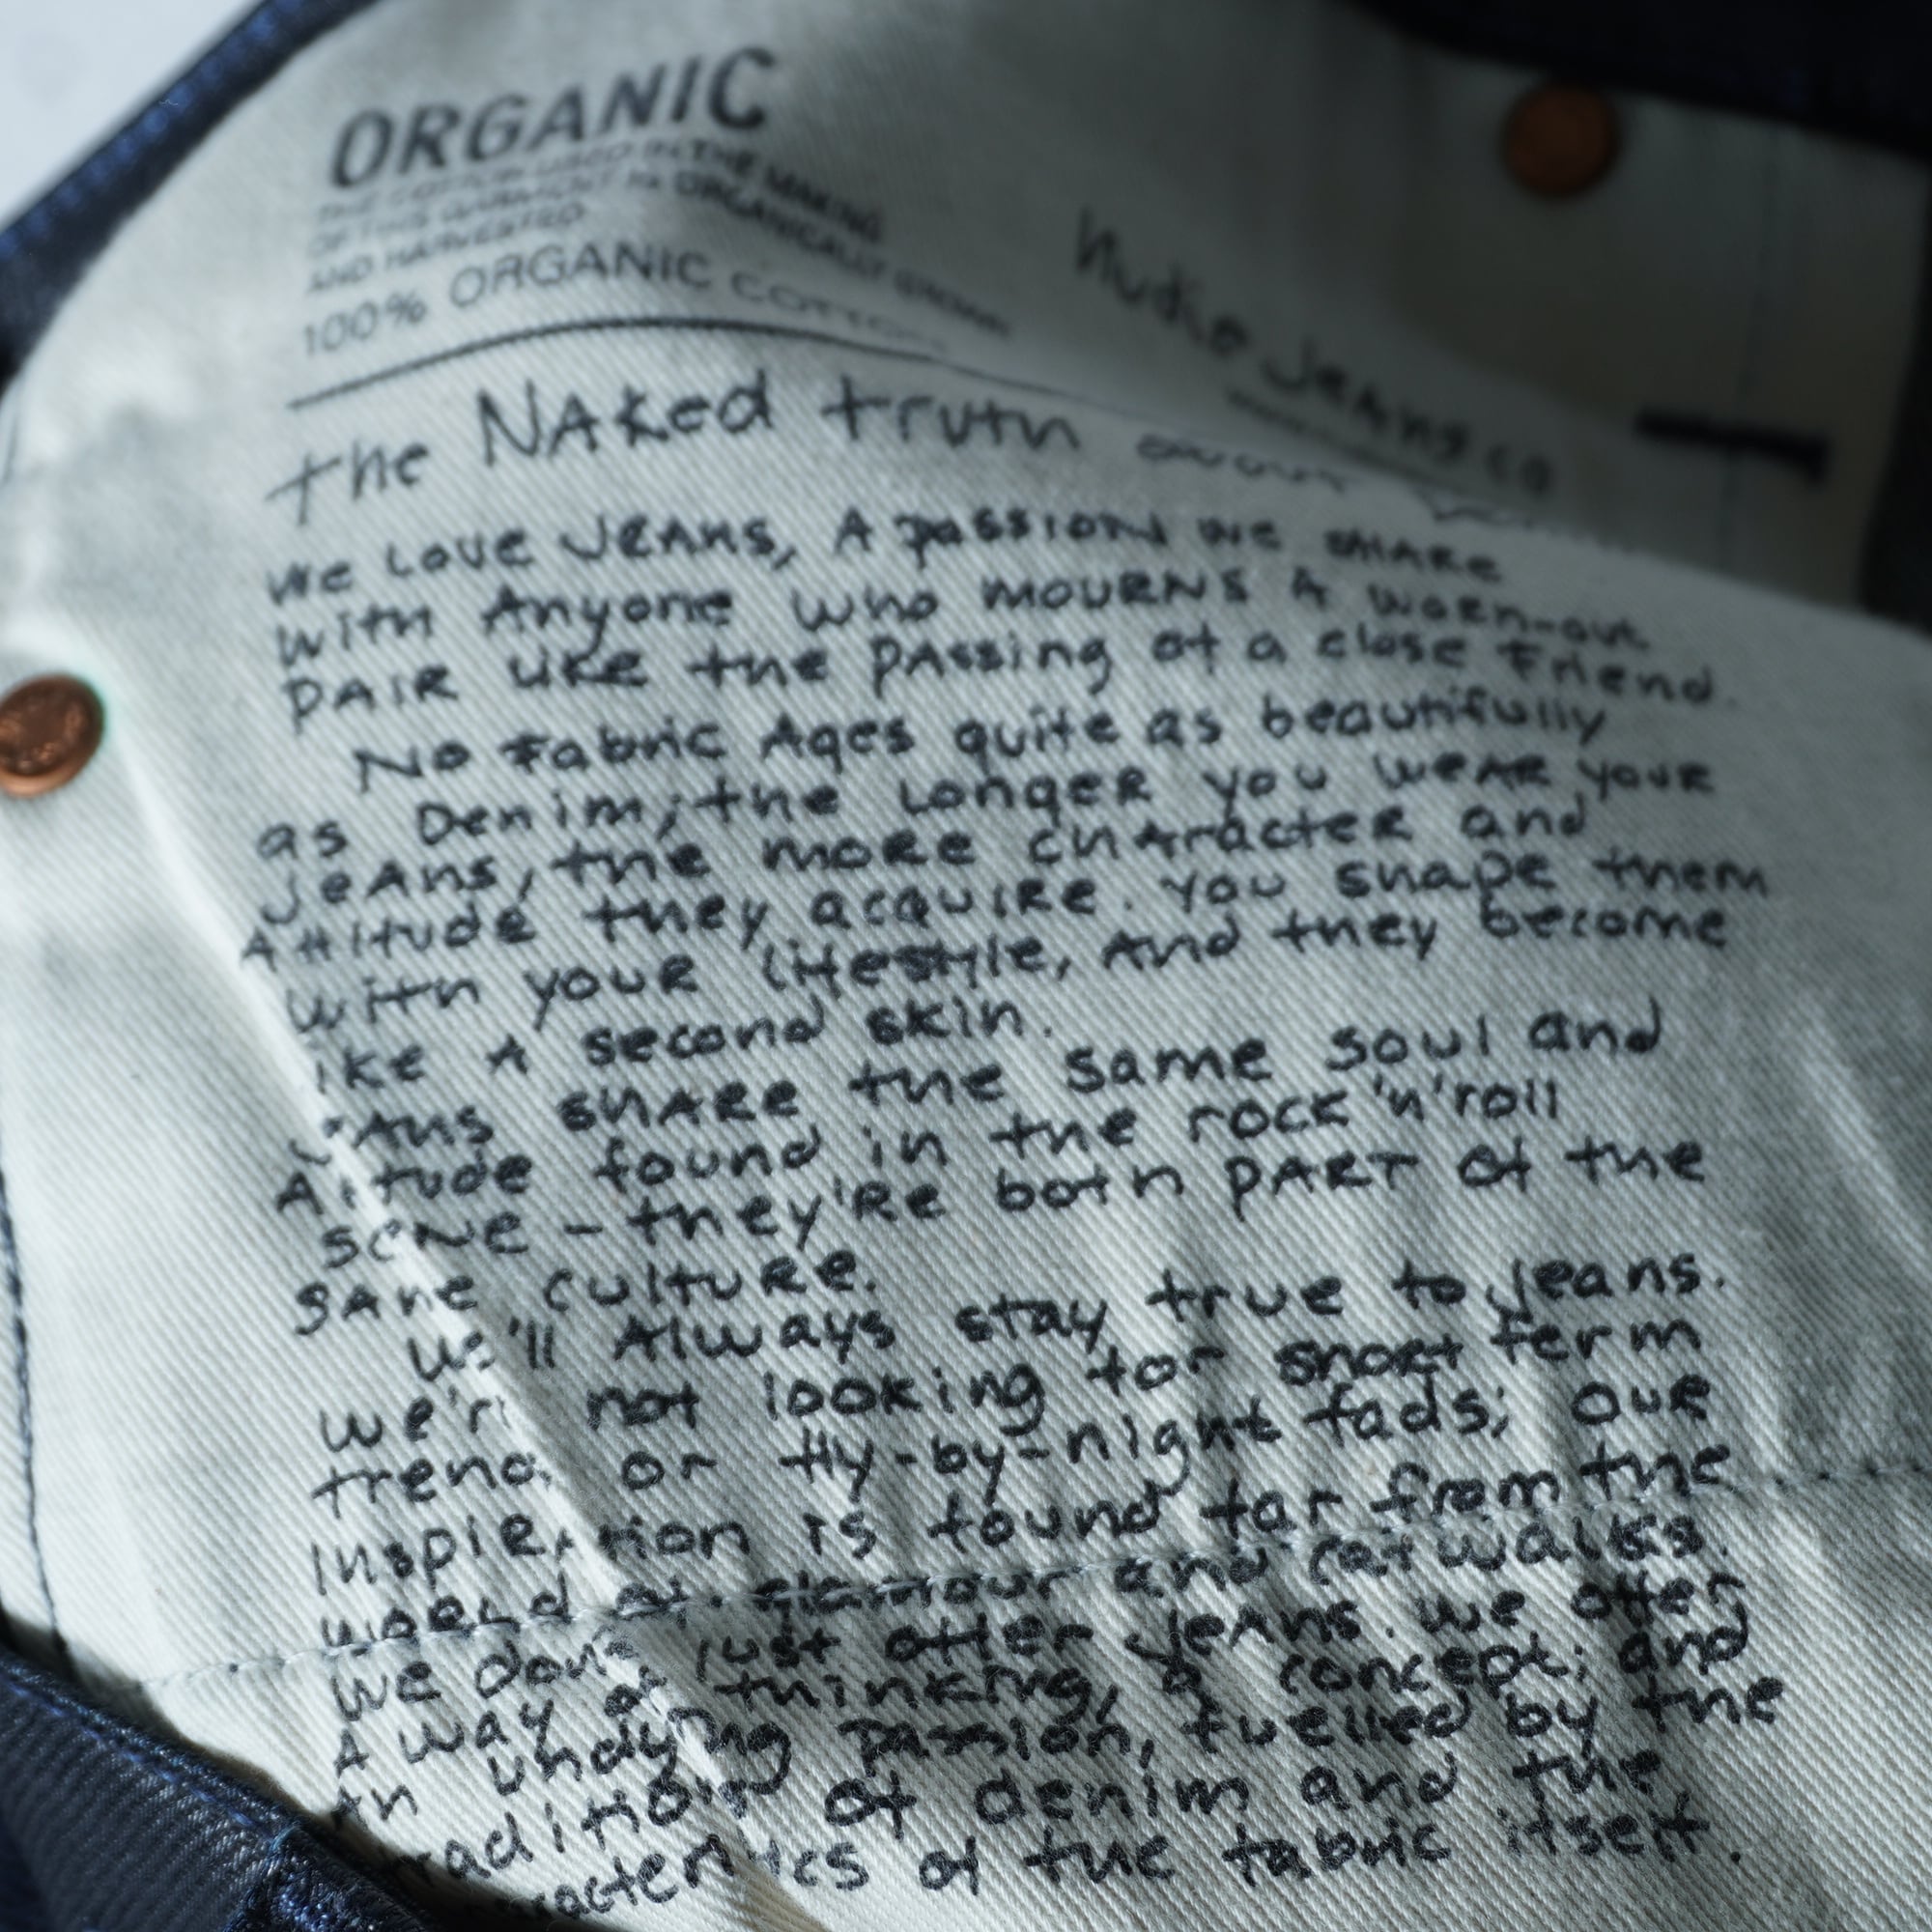 ORGANIC
THE COTTON USED IN THE MAKING
OF THIS GARMENT IS ORGANICALLY GROWN
AND HARVESTED
100% ORGANIC COTTON
Nudie Jeans co
The NAked truth about
We Love JEAns, A passion we sHARe
with Anyone who mouRNS A woRn-out
PAIR Like the PAssing of a close Friend.
No Fabric Ages quite as beautifully
as Denim; the LongeR you weAR youR
JeAns, the moRe chAracteR and
Attitude they acquiRe. You shape them
with youR Lifestyle, And they become
ike A second skin.
JeAns shARe the same soul and
Attitude found in the rock 'n' roll
scene - they'Re both PART of the
sAme cultuRe.
We'll Always stay true to Jeans.
we're not looking for shoRt term
trends or fly-by-night fads; ouR
InspiRation is found far from the
woRLd of glamour and catwalks.
We don't just offer JeAns. we offer
A way of thinking, a concept, and
An undying passion, fuelled by the
raditions of denim and the
aracteristics of the fabric itself.